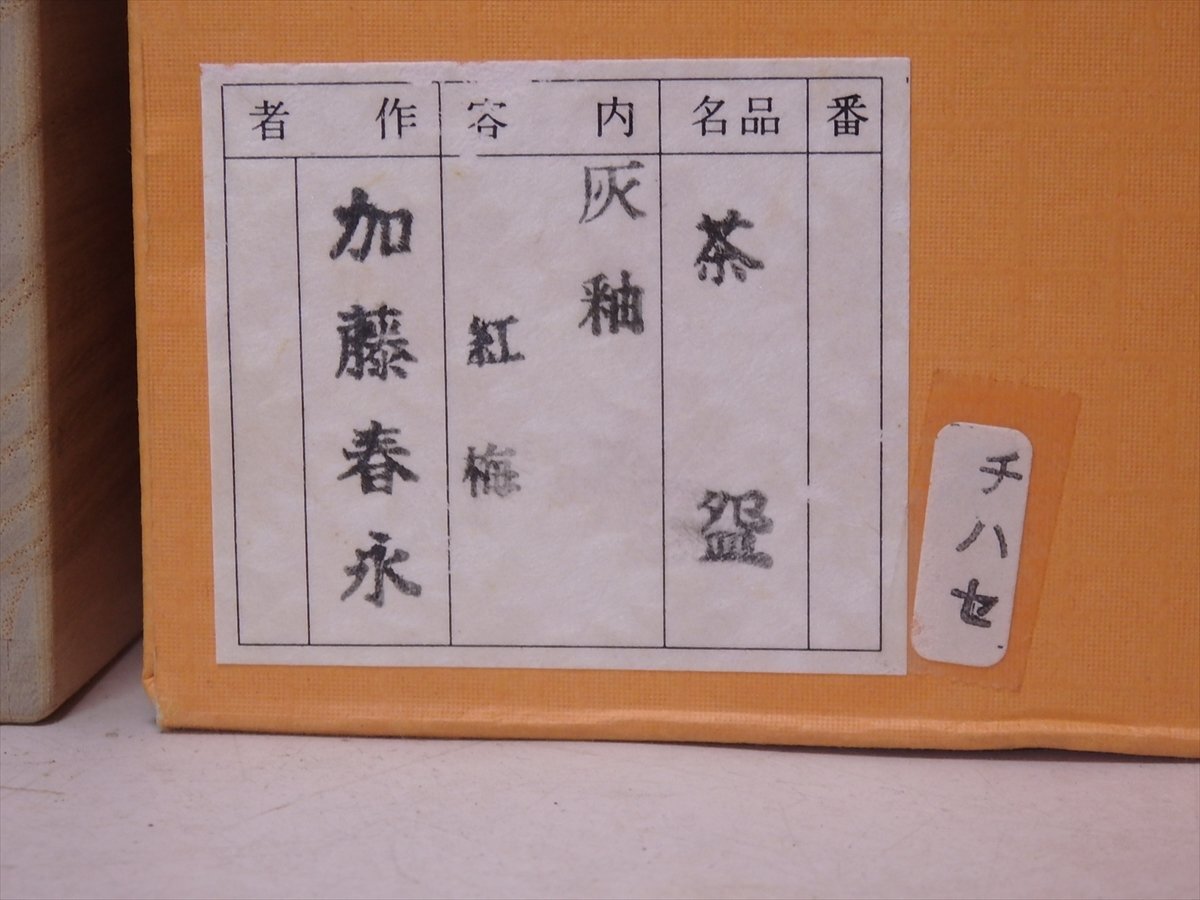 番
品名
茶盌
内容
灰釉
紅梅
作者
加藤春永
チハセ